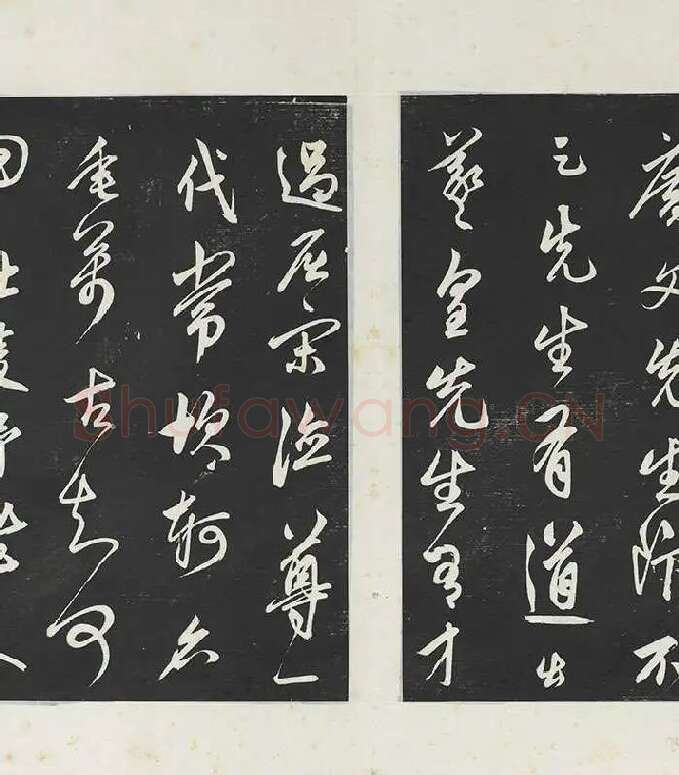 廣文先生飯不
足先生有道出
羲皇先生有才
過屈宋德尊一
代常坎軻名
垂萬古知何
用杜陵野客人
shufawang.CN